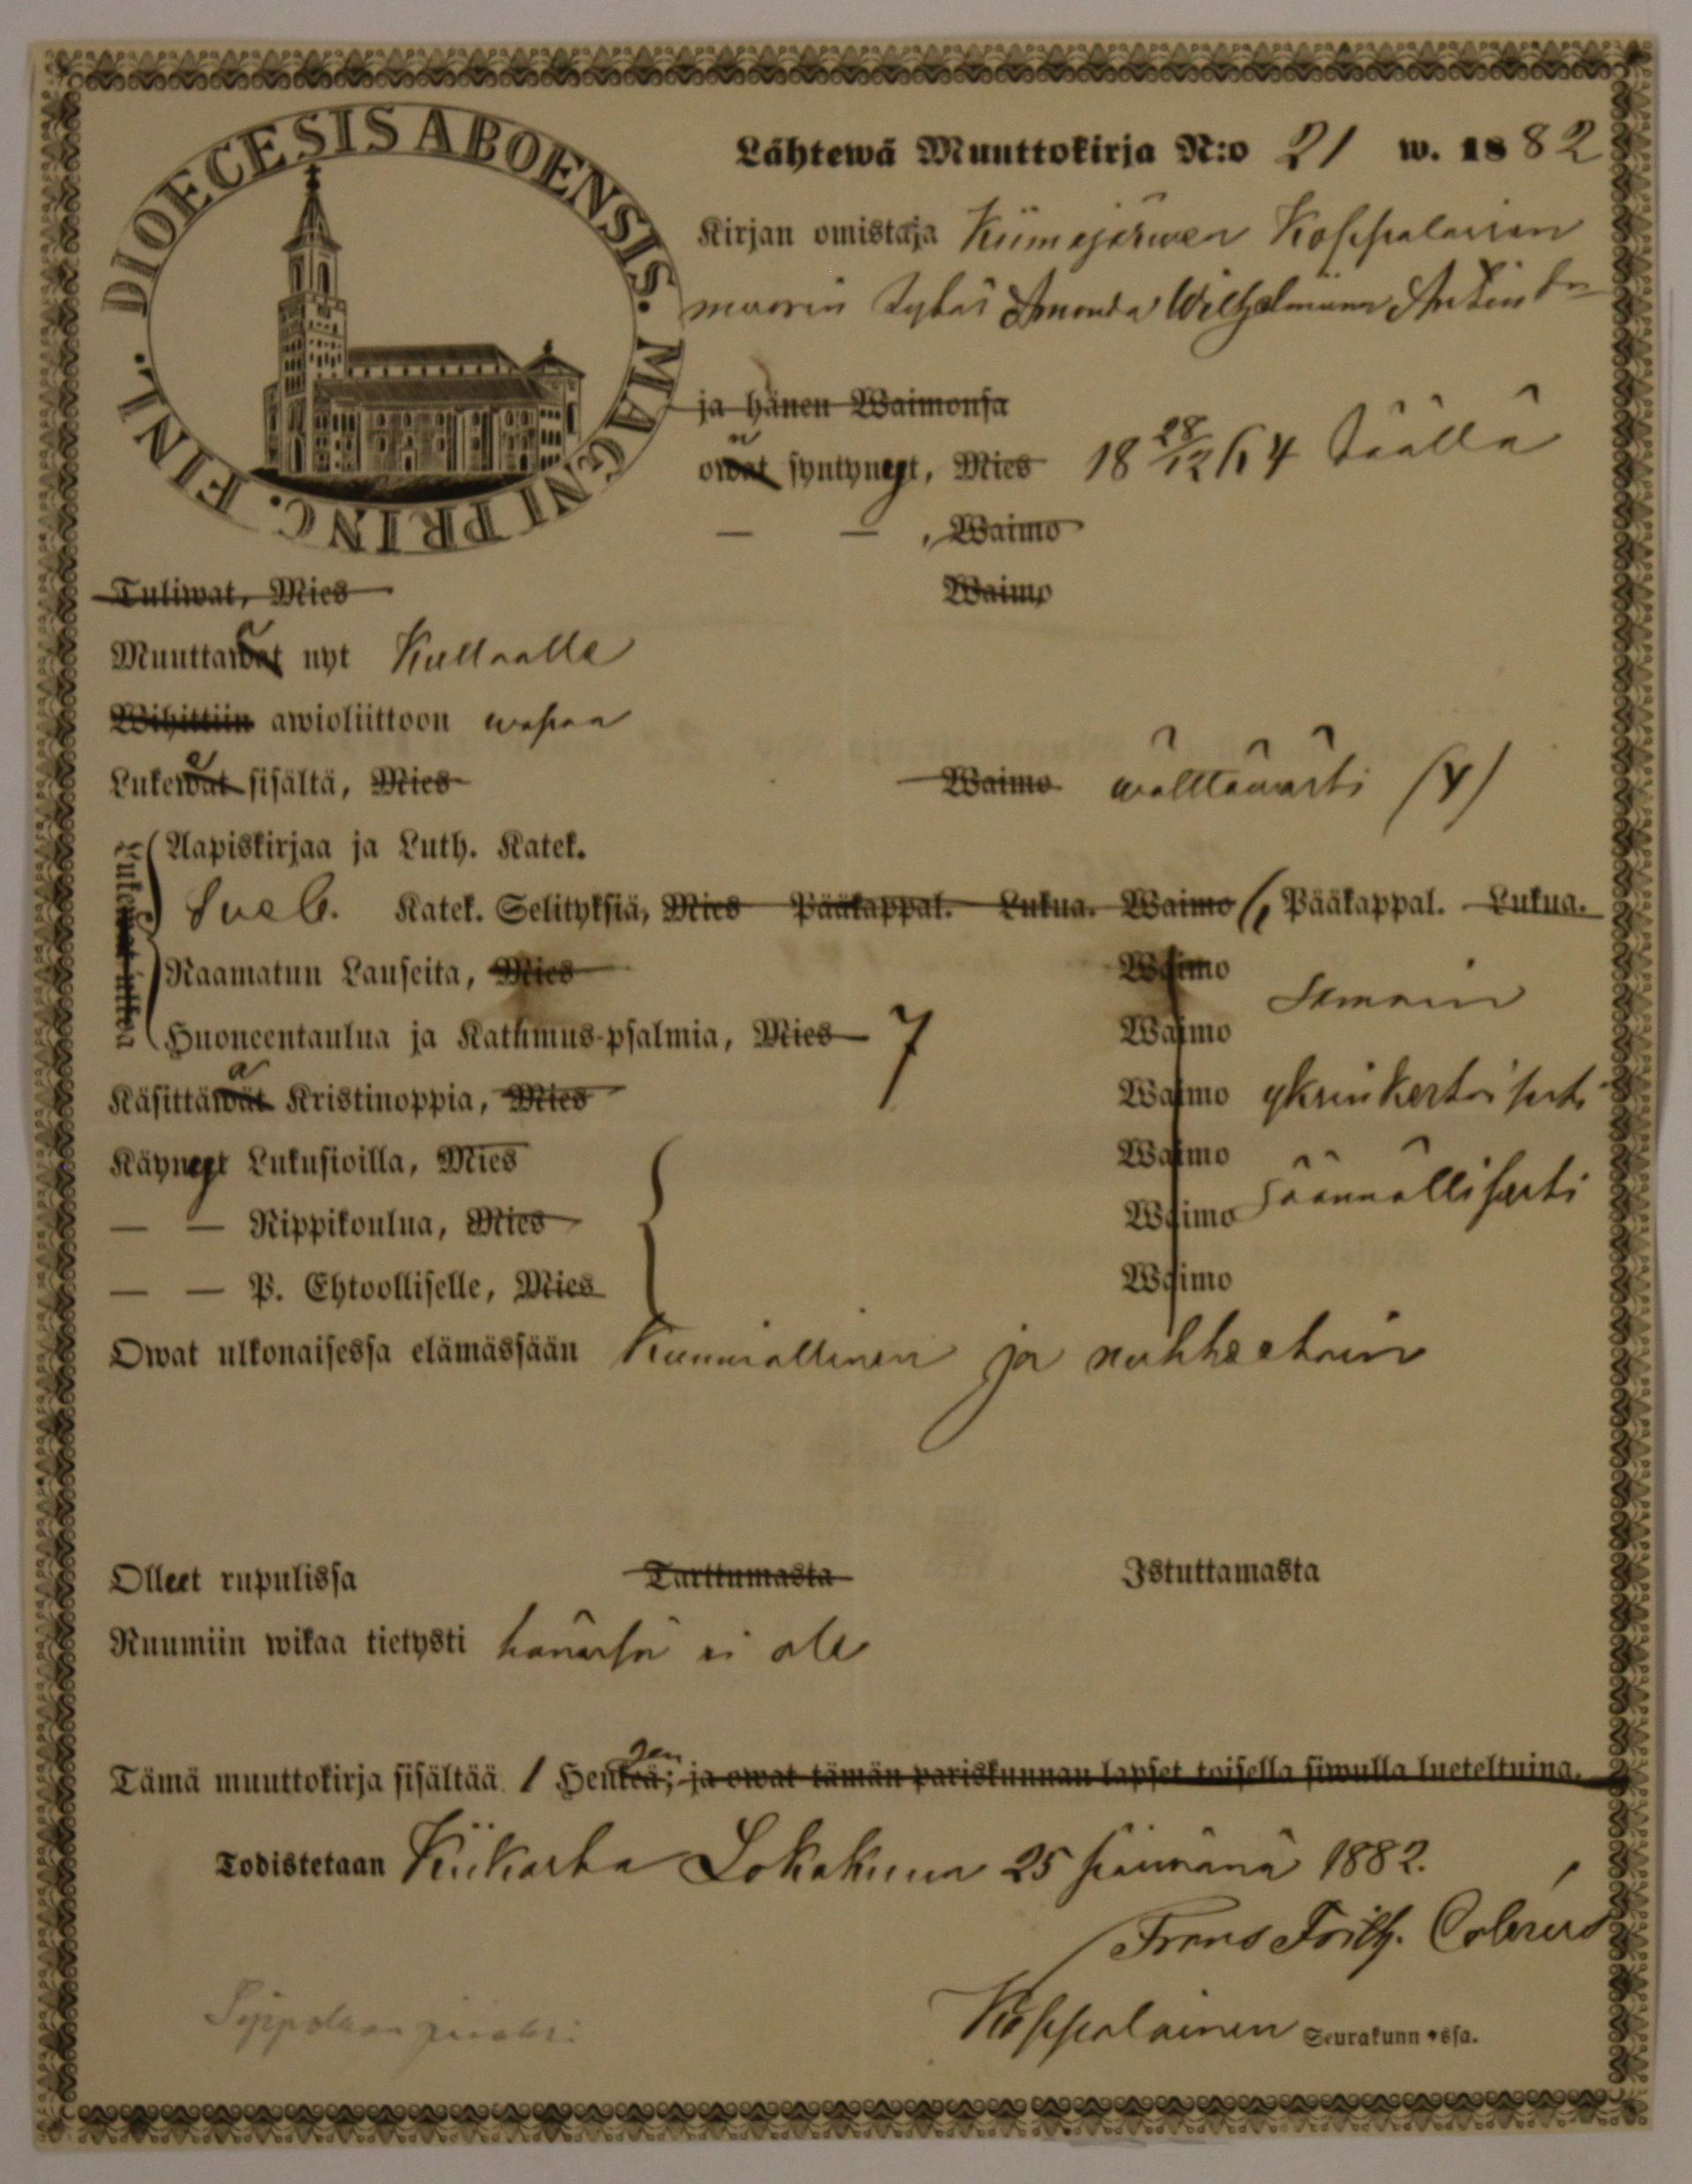 DIOECESIS ABOENSIS. MAGNI PRINC. FINL.
Lähtewä Muuttokirja N:o 21 w. 1882
Kirjan omistaja Kiimajärwen Koppalaisen
muorin tytär Amanda Wilhelmiina Antint:r
ja hänen Waimonsa
owat syntynyt, Mies 18 28/12 64 täällä
— — , Waimo
Tuliwat, Mies Waimo
Muuttawat a nyt Kullaalle
Wihittiin awioliittoon wapaa
Lukewat sisältä, Mies Waimo wälttäwästi (4)
Lukewat ulkoa
Aapiskirjaa ja Luth. Katek.
Sueb. Katek. Selityksiä, Mies Pääkappal. Lukua. Waimo 6 Pääkappal. Lukua.
Raamatun Lauseita, Mies Waimo
Huoneentaulua ja Kathmus-psalmia, Mies 7 Waimo
Käsittäwät Kristinoppia, Mies Waimo yksinkertaisesti
Käynyt Lukusioilla, Mies Waimo
— — Rippikoulua, Mies Waimo säännöllisesti
— — P. Ehtoolliselle, Mies Waimo
Owat ulkonaisessa elämässään Kunniallinen ja nuhteetoin
Olleet rupulissa Tarttumasta Istuttamasta
Ruumiin wikaa tietysti hänessä ei ole
Tämä muuttokirja sisältää 1 Henkeä; gen ja owat tämän pariskunnan lapset toisella siwulla lueteltuina.
Todistetaan Kiikasta Lokakuun 25 päiwänä 1882.
Frans Frith.
Kappalainen Seurakunnassa.